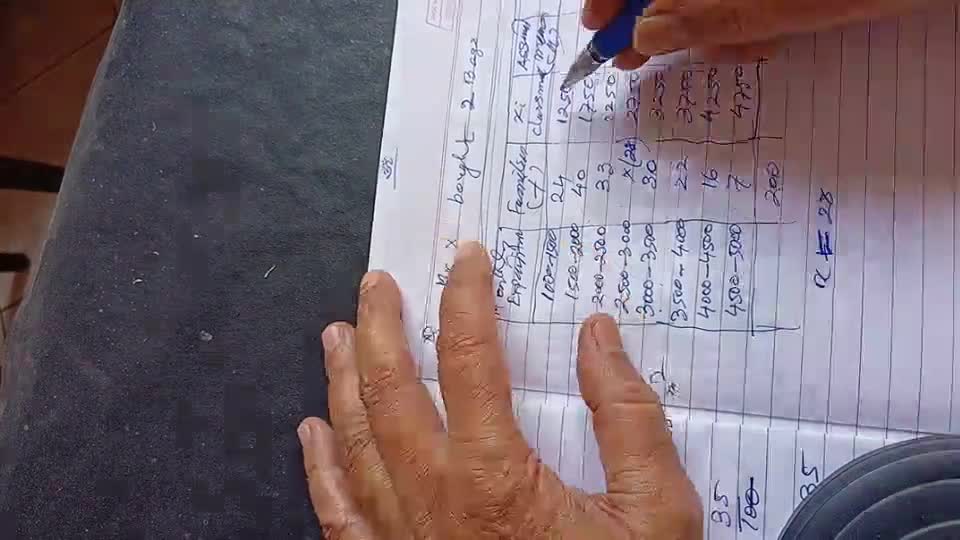 Mr X bought 2 Bags
Monthly Expenditure | Families (f) | xi classmark | Assumed mean
1000-1500 24 1250
1500-2000 40 1750
2000-2500 33 2250
2500-3000 x(28) 2750
3000-3500 30 3250
3500-4000 22 3750
4000-4500 16 4250
4500-5000 7 4750
200
x = 28
35
100
35